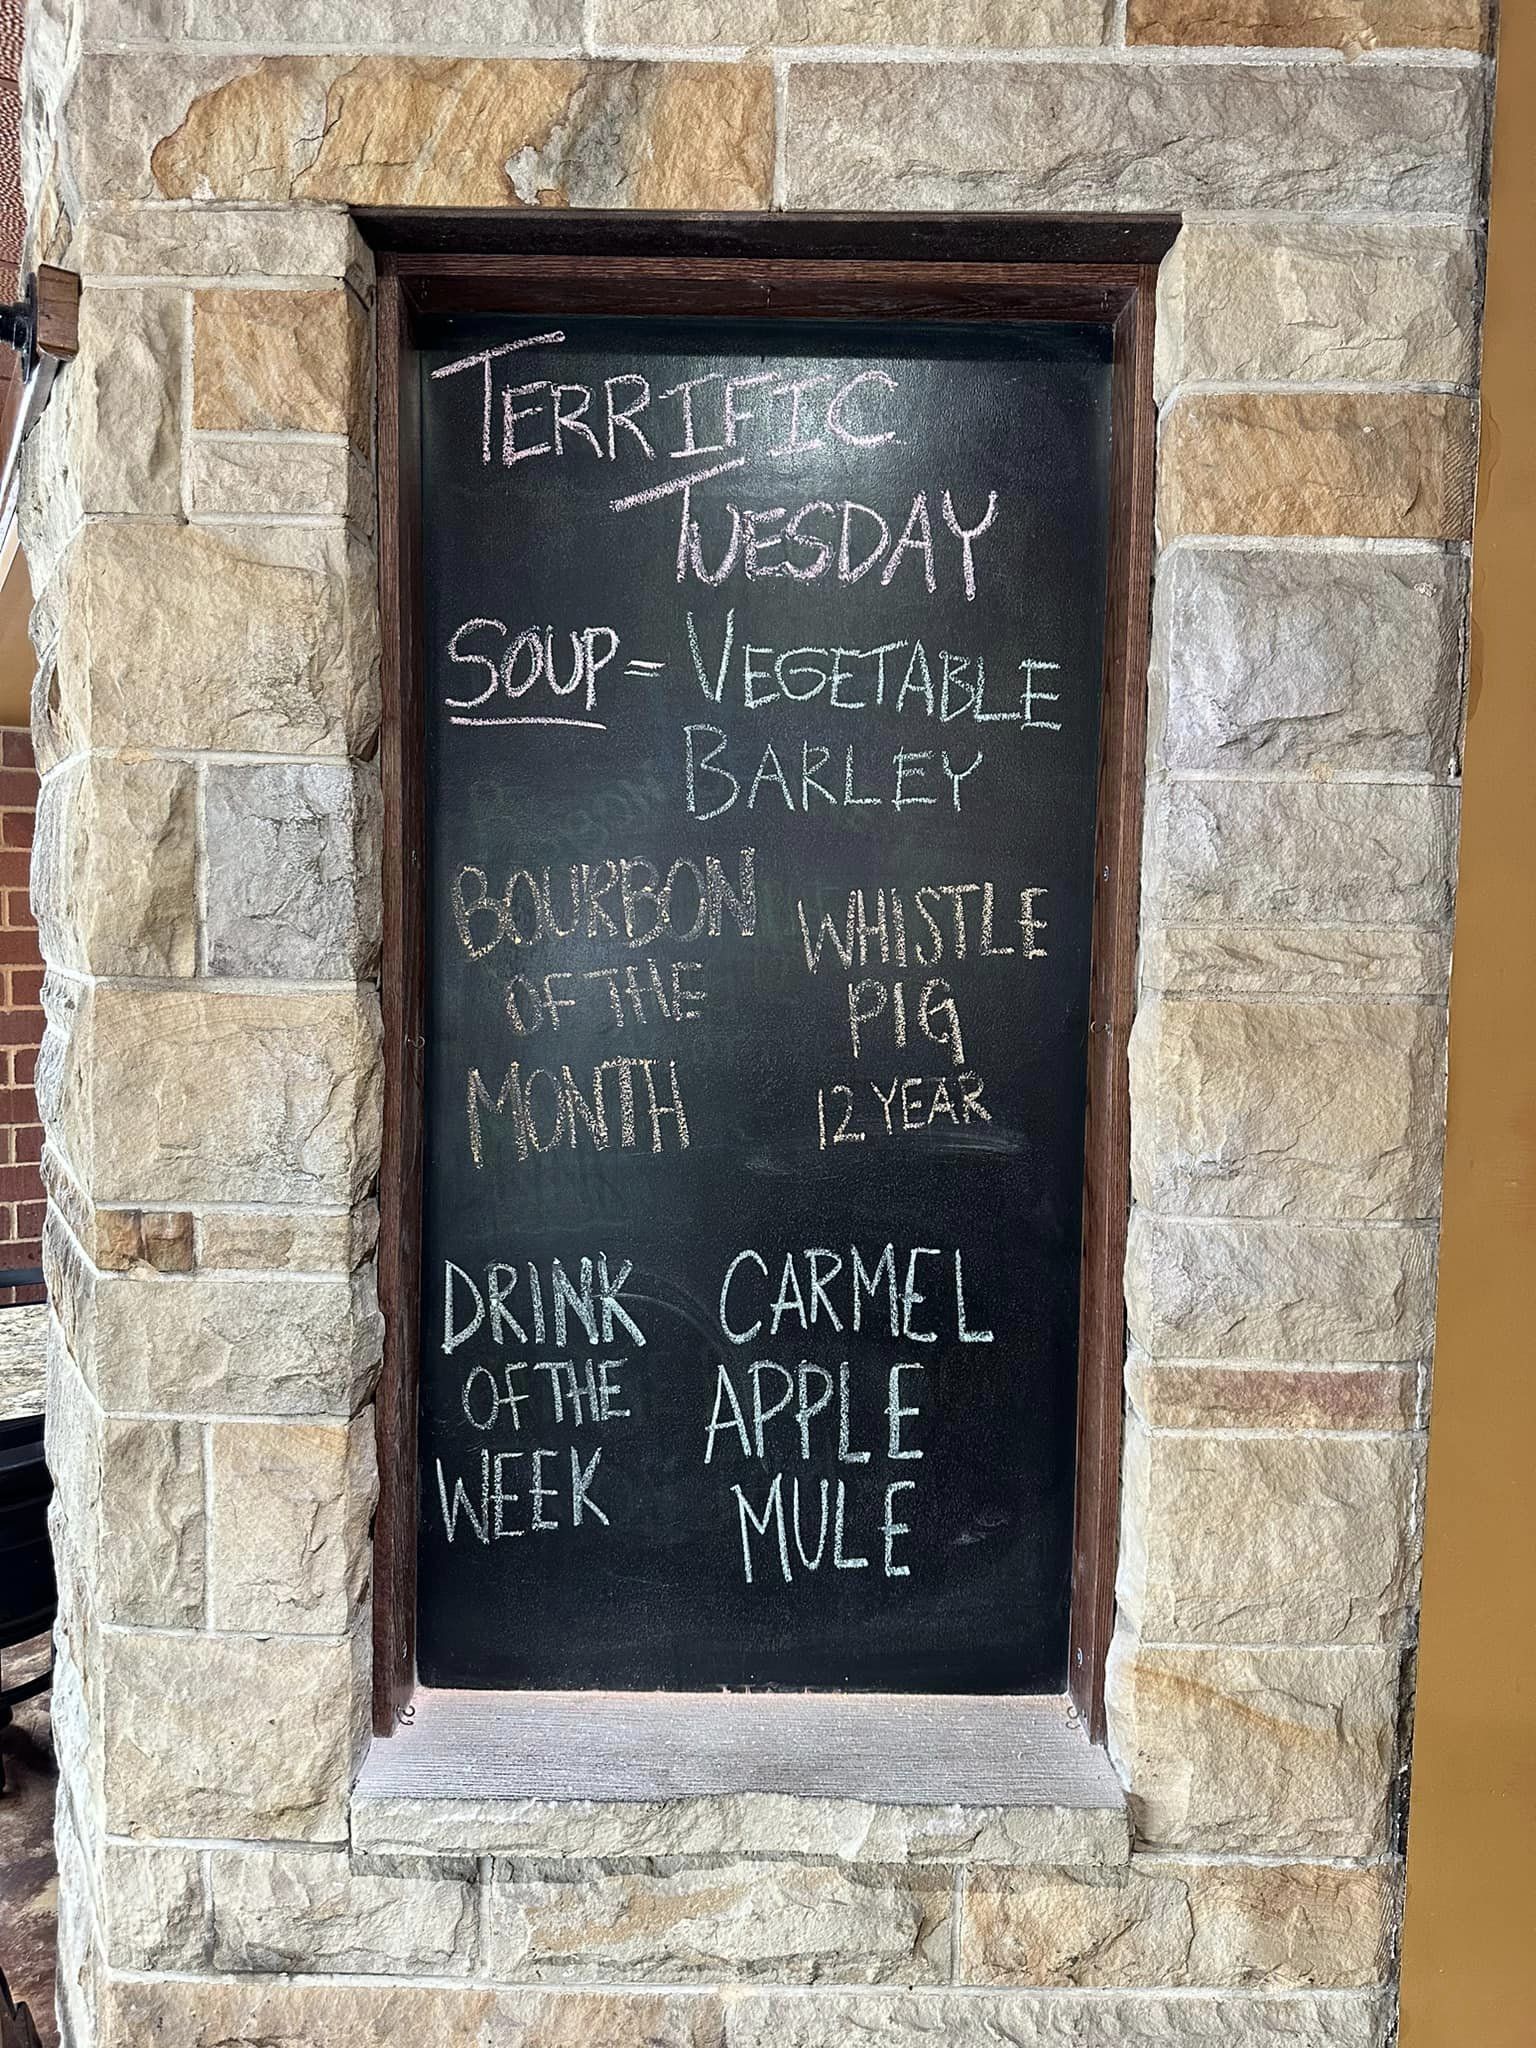 TERRIFIC
TUESDAY
SOUP = VEGETABLE
BARLEY
BOURBON
OF THE
MONTH
WHISTLE
PIG
12 YEAR
DRINK
OF THE
WEEK
CARMEL
APPLE
MULE